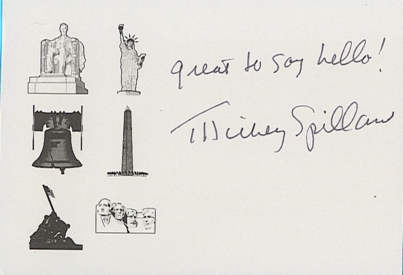 great to say hello!
Mickey Spillane